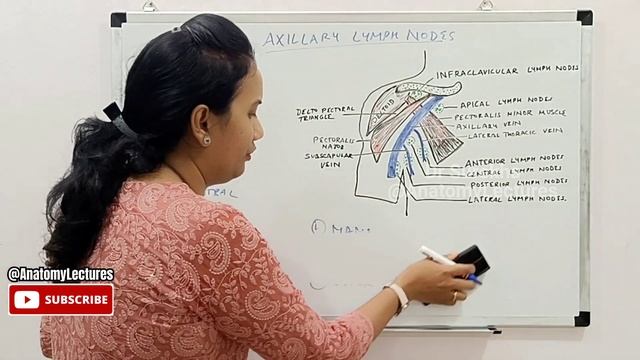 AXILLARY LYMPH NODES
INFRACLAVICULAR LYMPH NODES
DELTO PECTORAL
TRIANGLE
APICAL LYMPH NODES
PECTORALIS MINOR MUSCLE
AXILLARY VEIN
LATERAL THORACIC VEIN
PECTORALIS
MAJOR
SUBSCAPULAR
VEIN
ANTERIOR LYMPH NODES
CENTRAL LYMPH NODES
POSTERIOR LYMPH NODES
LATERAL LYMPH NODES
@AnatomyLectures
TRAL
① MAM
@AnatomyLectures
SUBSCRIBE